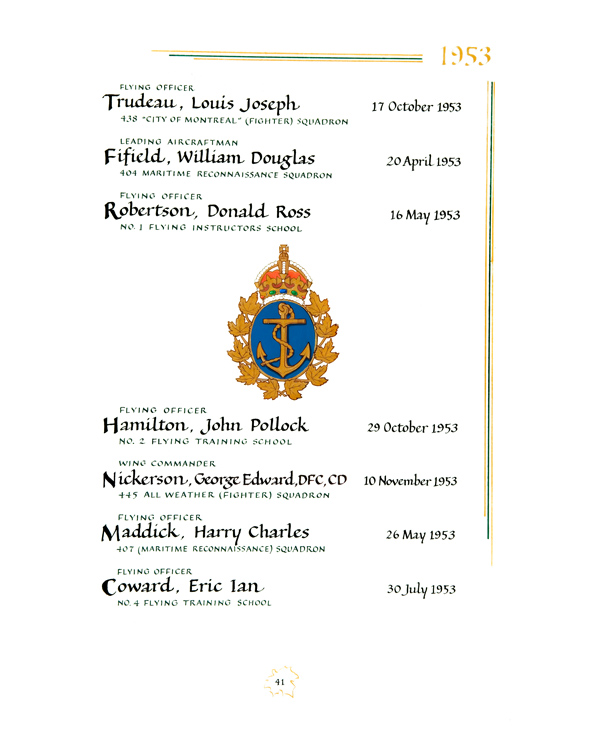 1953
FLYING OFFICER
Trudeau, Louis Joseph 17 October 1953
438 "CITY OF MONTREAL" (FIGHTER) SQUADRON
LEADING AIRCRAFTMAN
Fifield, William Douglas 20 April 1953
404 MARITIME RECONNAISSANCE SQUADRON
FLYING OFFICER
Robertson, Donald Ross 16 May 1953
NO. 1 FLYING INSTRUCTORS SCHOOL
FLYING OFFICER
Hamilton, John Pollock 29 October 1953
NO. 2 FLYING TRAINING SCHOOL
WING COMMANDER
Nickerson, George Edward, DFC, CD 10 November 1953
445 ALL WEATHER (FIGHTER) SQUADRON
FLYING OFFICER
Maddick, Harry Charles 26 May 1953
407 (MARITIME RECONNAISSANCE) SQUADRON
FLYING OFFICER
Coward, Eric Ian 30 July 1953
NO. 4 FLYING TRAINING SCHOOL
41